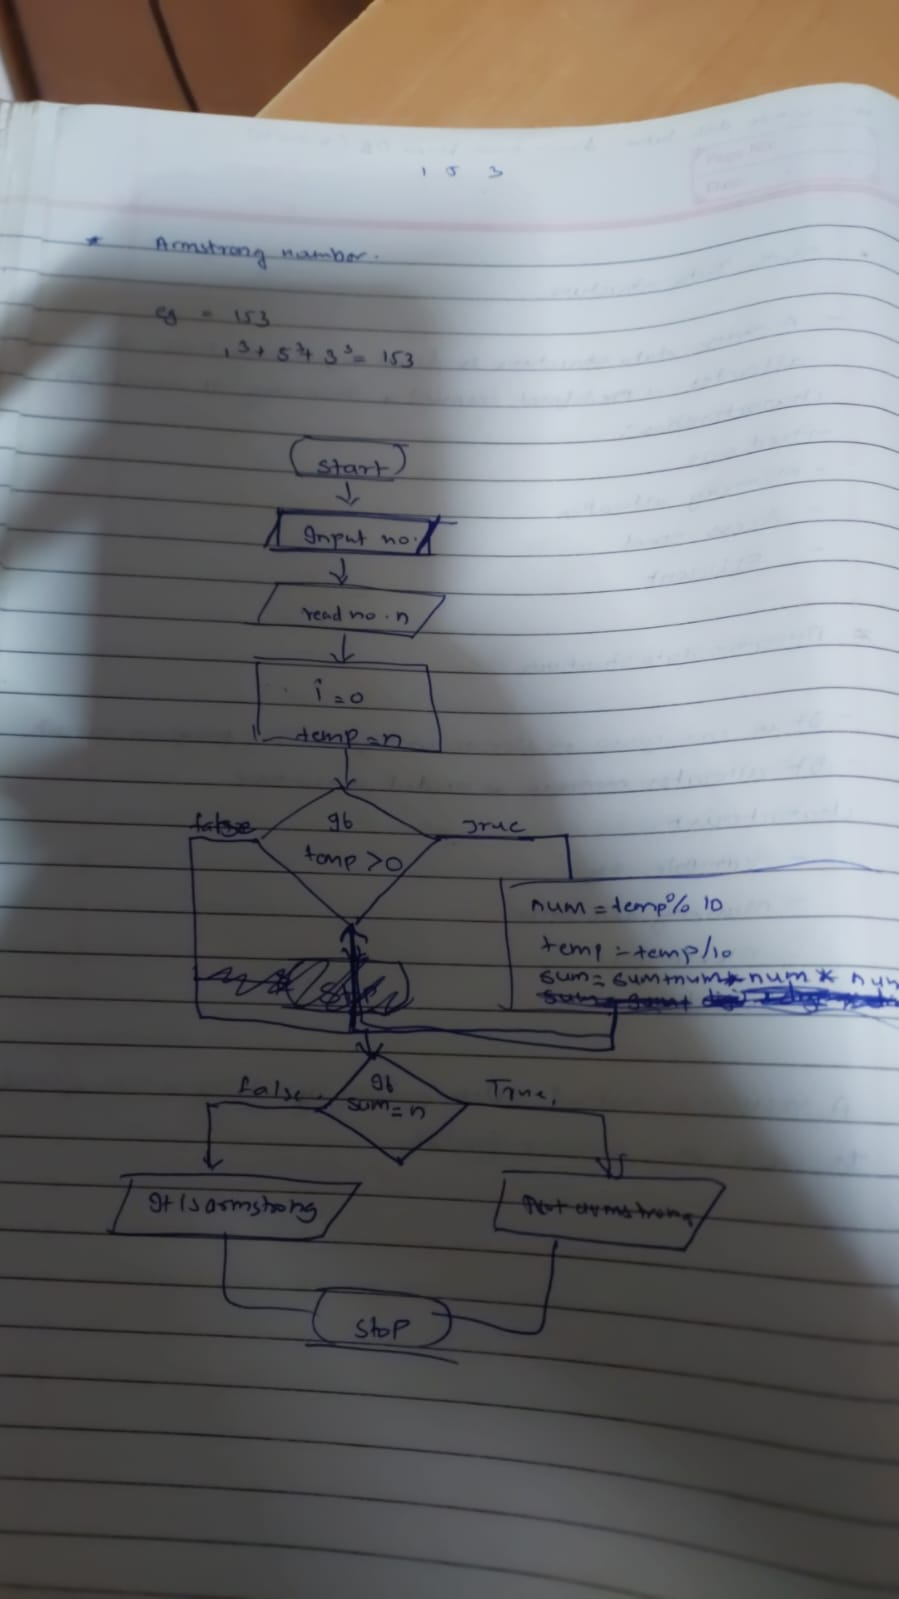 1 5 3
* Armstrong number.
eg = 153
1³ + 5³ + 3³ = 153
start
Input no.
read no. n
i = 0
temp = n
If
temp > 0
false
True
num = temp % 10
temp = temp/10
sum = sum + num * num * num
If
sum = n
false
True,
It is armstrong
Not armstrong
stop